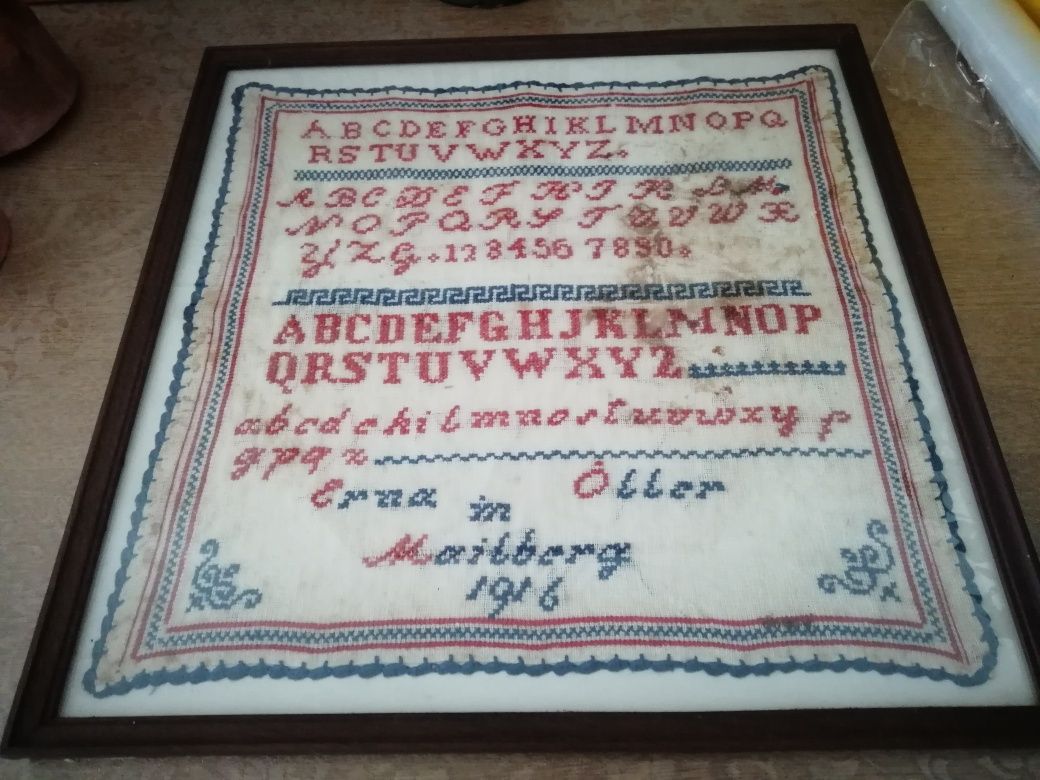 ABCDEFGHIKLMNOPQ
RSTUVWXYZ.
ABCDEFHIKLM
NOPQRSTUVWX
YZG.1234567890.
ABCDEFGHJKLMNOP
QRSTUVWXYZ
abcdehilmnortuvwxyp
gpqz
Erna Öller
in
Mailberg
1916